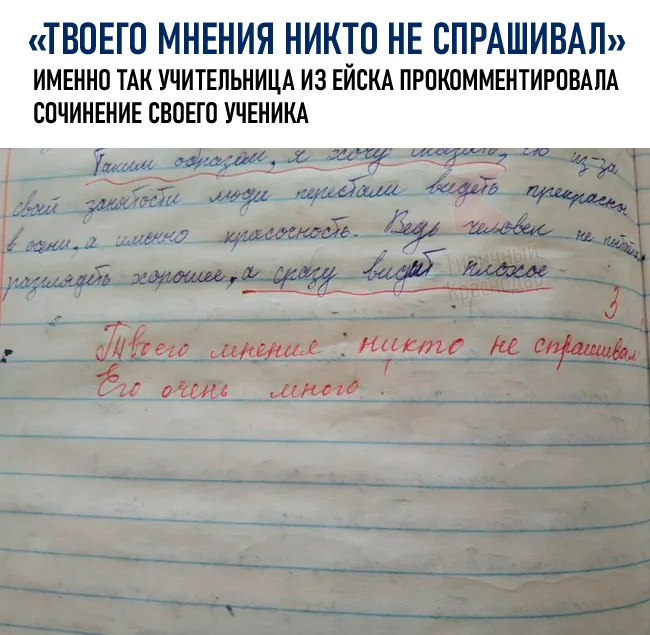 «ТВОЕГО МНЕНИЯ НИКТО НЕ СПРАШИВАЛ»
ИМЕННО ТАК УЧИТЕЛЬНИЦА ИЗ ЕЙСКА ПРОКОММЕНТИРОВАЛА
СОЧИНЕНИЕ СВОЕГО УЧЕНИКА
Таким образом, я хочу сказать, из-за
своей занятости люди перестали видеть
в осени, а именно красочность. Ведь человек не
разглядеть хорошее, а сразу видит плохое
Типичный
Краснодар
3
Твоего мнения никто не спрашивал
Его очень много!